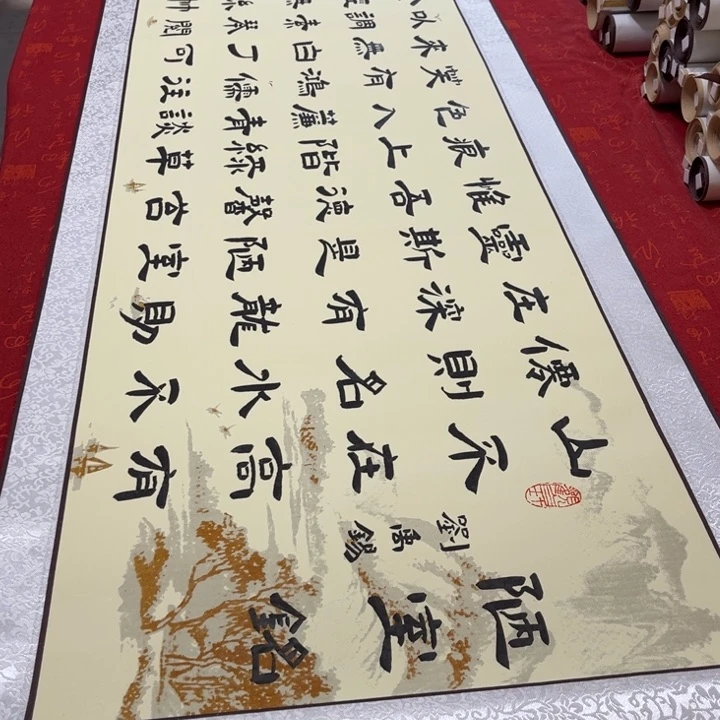 陋室銘
劉禹錫
山不在高有
僊則名水不
在深有龍則
靈斯是陋室
惟吾德馨苔
痕上階綠草
色入簾青談
笑有鴻儒往
來無白丁可
以調素琴閱